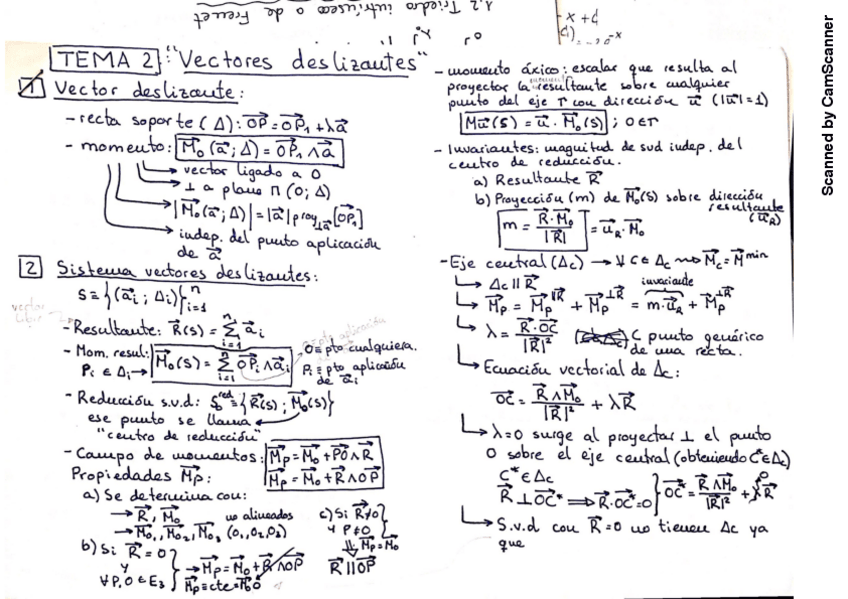 1.2 Triedro intrínseco o de Frenet
-x + d
TEMA 2: "Vectores deslizantes"
1 Vector deslizante:
- recta soporte (Δ): OP⃗ = OP₁⃗ + λa⃗
- momento: M⃗₀(a⃗; Δ) = OP₁⃗ ∧ a⃗
vector ligado a O
⊥ a plano Π (O; Δ)
|M⃗₀(a⃗; Δ)| = |a⃗| |proy⊥a⃗ [OP₁⃗]
indep. del punto aplicación
de a⃗
2 Sistema vectores deslizantes:
S = {(a⃗ᵢ; Δᵢ)}ⁿᵢ₌₁
vector
libre
- Resultante: R⃗(S) = Σⁿᵢ₌₁ a⃗ᵢ
- Mom. resul: M⃗₀(S) = Σⁿᵢ₌₁ OPᵢ⃗ ∧ a⃗ᵢ
Pᵢ ∈ Δᵢ →
O = pto cualquiera.
Pᵢ = pto aplicación
de a⃗ᵢ
- Reducción s.v.d: S^red = {R⃗(S); M⃗₀(S)}
ese punto se llama
"centro de reducción"
- Campo de momentos: M⃗p = M⃗₀ + PO⃗ ∧ R⃗
M⃗p = M⃗₀ + R⃗ ∧ OP⃗
Propiedades M⃗p:
a) Se determina con:
→ R⃗, M⃗₀
→ M⃗₀₁, M⃗₀₂, M⃗₀₃ no alineados (O₁, O₂, O₃)
b) Si R⃗ = 0
y
∀P, O ∈ E₃
→ M⃗p = M⃗₀ + R⃗ ∧ OP⃗
M⃗p = cte = M⃗₀
c) Si R⃗ ≠ 0
y P ≠ O
⇓ M⃗p = M⃗₀
R⃗ || OP⃗
- momento áxico: escalar que resulta al
proyectar la resultante sobre cualquier
punto del eje r con dirección u⃗ (|u⃗| = 1)
Mu⃗(S) = u⃗ · M⃗₀(S) ; O ∈ r
- Invariantes: magnitud de svd indep. del
centro de reducción.
a) Resultante R⃗
b) Proyección (m) de M⃗₀(S) sobre dirección
resultante
(u⃗_R)
m = R⃗·M⃗₀ / |R⃗| = u⃗_R · M⃗₀
- Eje central (Δc) → ∀ C ∈ Δc ⇝ M⃗c = M⃗ᵐⁱⁿ
Δc || R⃗
invariante
M⃗p = M⃗p^||R⃗ + M⃗p^⊥R⃗ = m·u⃗_R + M⃗p^⊥R⃗
λ = R⃗·OC⃗ / |R⃗|² C punto genérico
de una recta.
Ecuación vectorial de Δc:
OC⃗ = R⃗ ∧ M⃗₀ / |R⃗|² + λR⃗
λ=0 surge al proyectar ⊥ el punto
O sobre el eje central (obteniendo C* ∈ Δc)
C* ∈ Δc
R⃗ ⊥ OC*⃗ ⇒ R⃗·OC*⃗ = 0
OC*⃗ = R⃗ ∧ M⃗₀ / |R⃗|² + λR⃗ 0
S.v.d con R⃗ = 0 no tienen Δc ya
que
Scanned by CamScanner